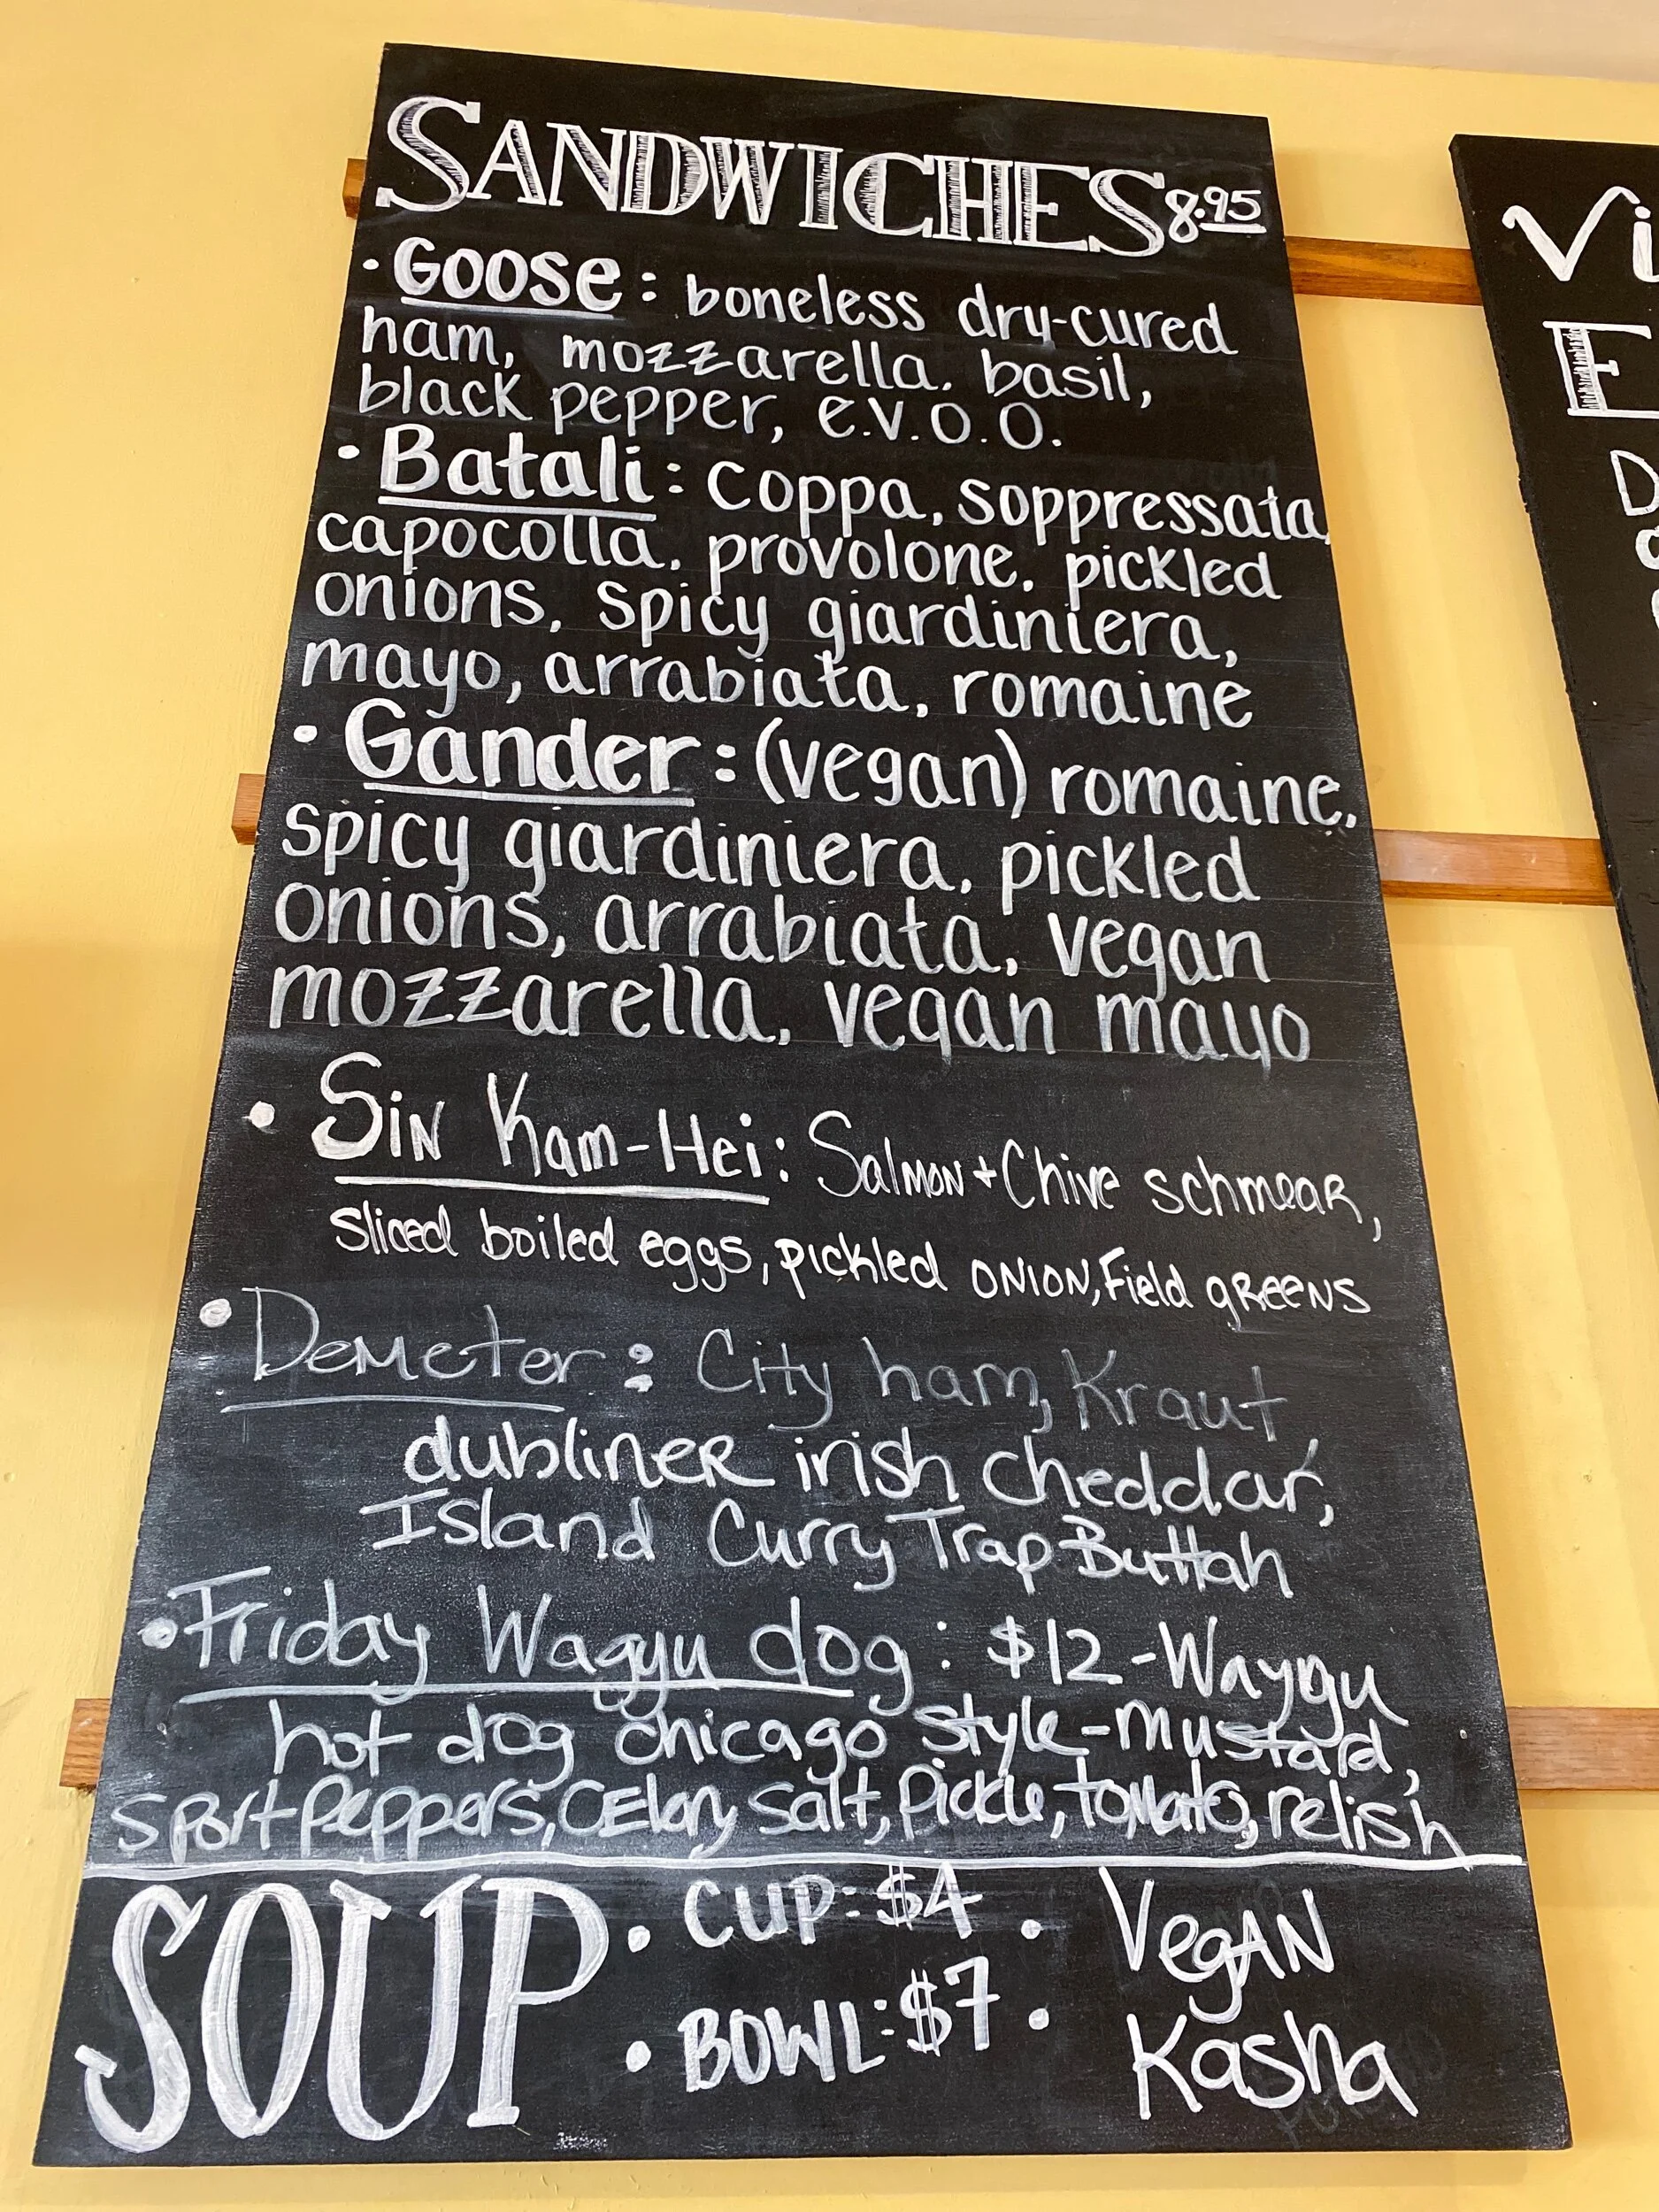 SANDWICHES 8.95
• Goose: boneless dry-cured
ham, mozzarella, basil,
black pepper, e.v.o.o.
• Batali: coppa, soppressata,
capocolla, provolone, pickled
onions, spicy giardiniera,
mayo, arrabiata, romaine
• Gander: (vegan) romaine,
spicy giardiniera, pickled
onions, arrabiata, vegan
mozzarella, vegan mayo
• Sin Kam-Hei: Salmon + Chive schmear,
sliced boiled eggs, pickled onion, Field greens
• Demeter: City ham, Kraut,
dubliner irish cheddar,
Island Curry Trap Buttah
• Friday Wagyu dog: $12 - Waygu
hot dog chicago style - mustard,
sport peppers, CElery salt, pickle, tomato, relish
SOUP • CUP: $4 • Vegan
• BOWL: $7 • Kasha
Vi
E
D